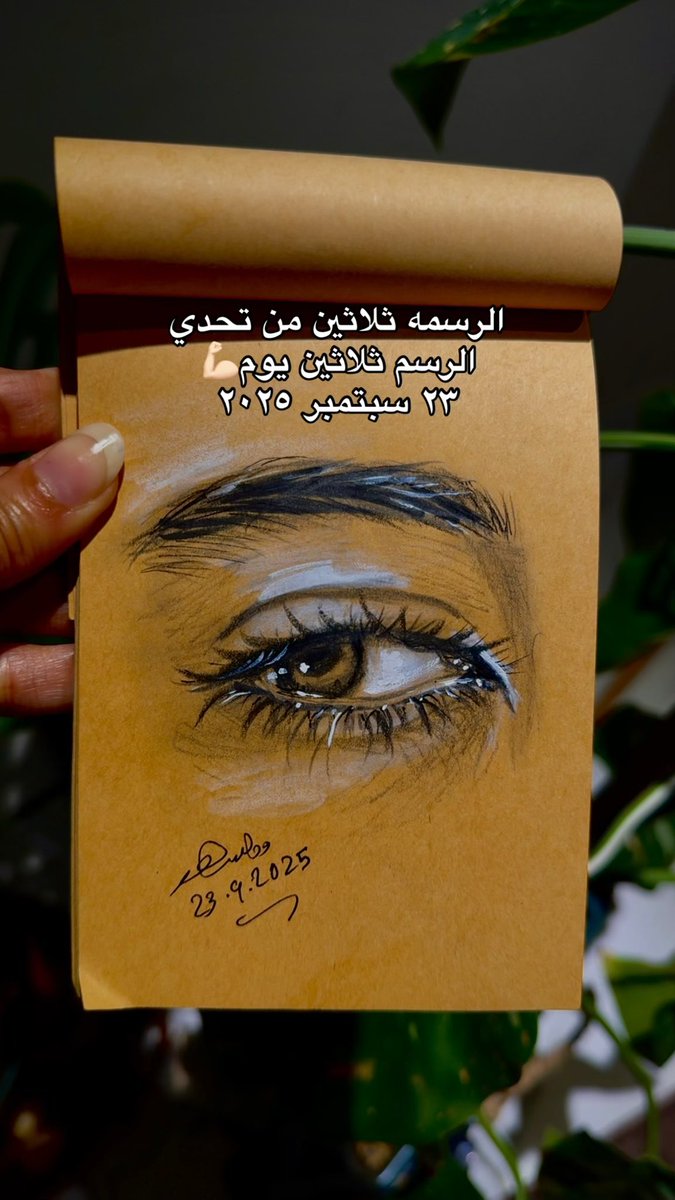 الرسمه ثلاثين من تحدي
الرسم ثلاثين يوم💪🏻
٢٣ سبتمبر ٢٠٢٥
23.9.2025